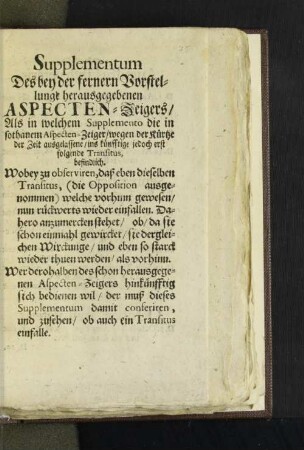 Supplementum
Des bey der fernern Vorstel-
lungt herausgegebenen
ASPECTEN-Zeigers/
Als in welchem Supplemento die in
sothanem Aspecten-Zeiger/wegen der Kürtze
der Zeit ausgelassene/ins künfftige jedoch erst
folgende Transitus,
befindlich.
Wobey zu observiren, daß eben dieselben
Transitus, (die Opposition ausge-
nommen) welche vorhinn gewesen/
nun rückwerts wieder einfallen. Da-
hero anzumercken stehet/ ob/ da sie
schon einmahl gewircket/ sie derglei-
chen Wirckunge/ und eben so starck
wieder thuen werden/ als vorhinn.
Wer derohalben des schon herausgege-
nen Aspecten-Zeigers hinkünfftig
sich bedienen wil/ der muß dieses
Supplementum damit conferiren,
und zusehen/ ob auch ein Transitus
einfalle.